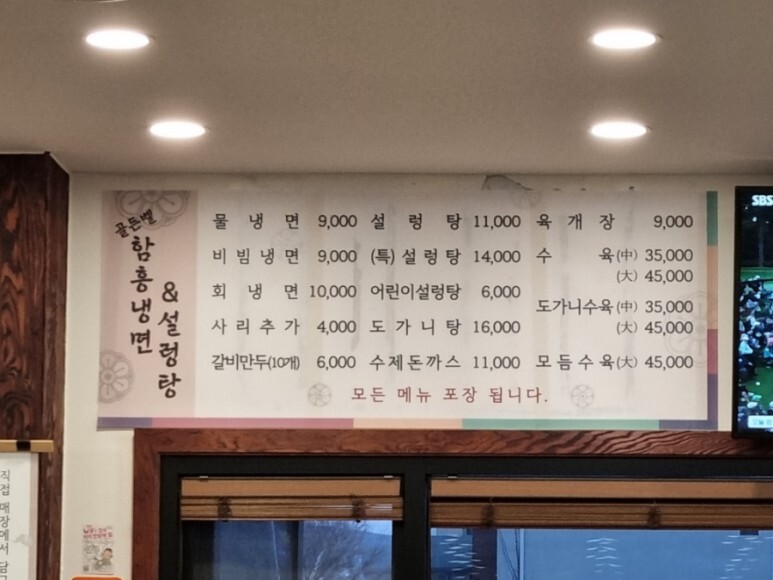 골든벨
함흥냉면
&설렁탕
물냉면 9,000
비빔냉면 9,000
회냉면 10,000
사리추가 4,000
갈비만두(10개) 6,000
설렁탕 11,000
(특)설렁탕 14,000
어린이설렁탕 6,000
도가니탕 16,000
수제돈까스 11,000
육개장 9,000
수육(中) 35,000
(大) 45,000
도가니수육(中) 35,000
(大) 45,000
모듬수육(大) 45,000
모든 메뉴 포장 됩니다.
SBS
직접 매장에서